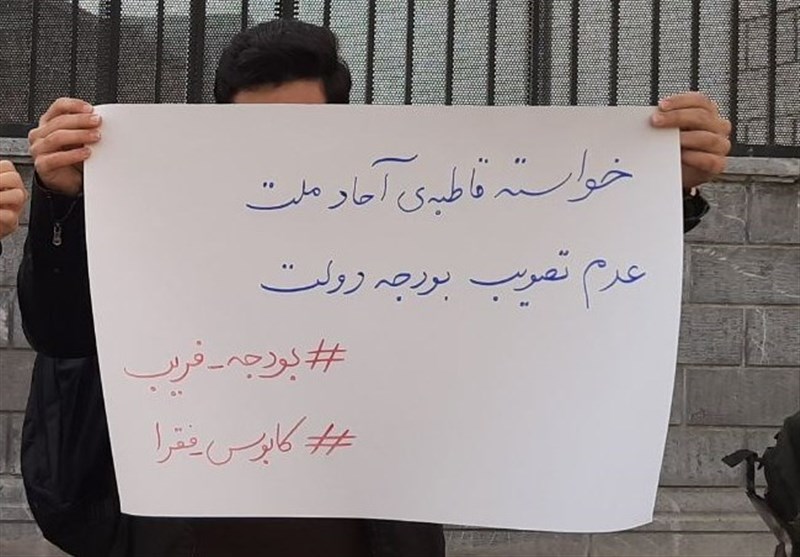 خواسته قاطبه‌ی آحاد ملت
عدم تصویب بودجه دولت
#بودجه_فریب
#کابوس_فقرا